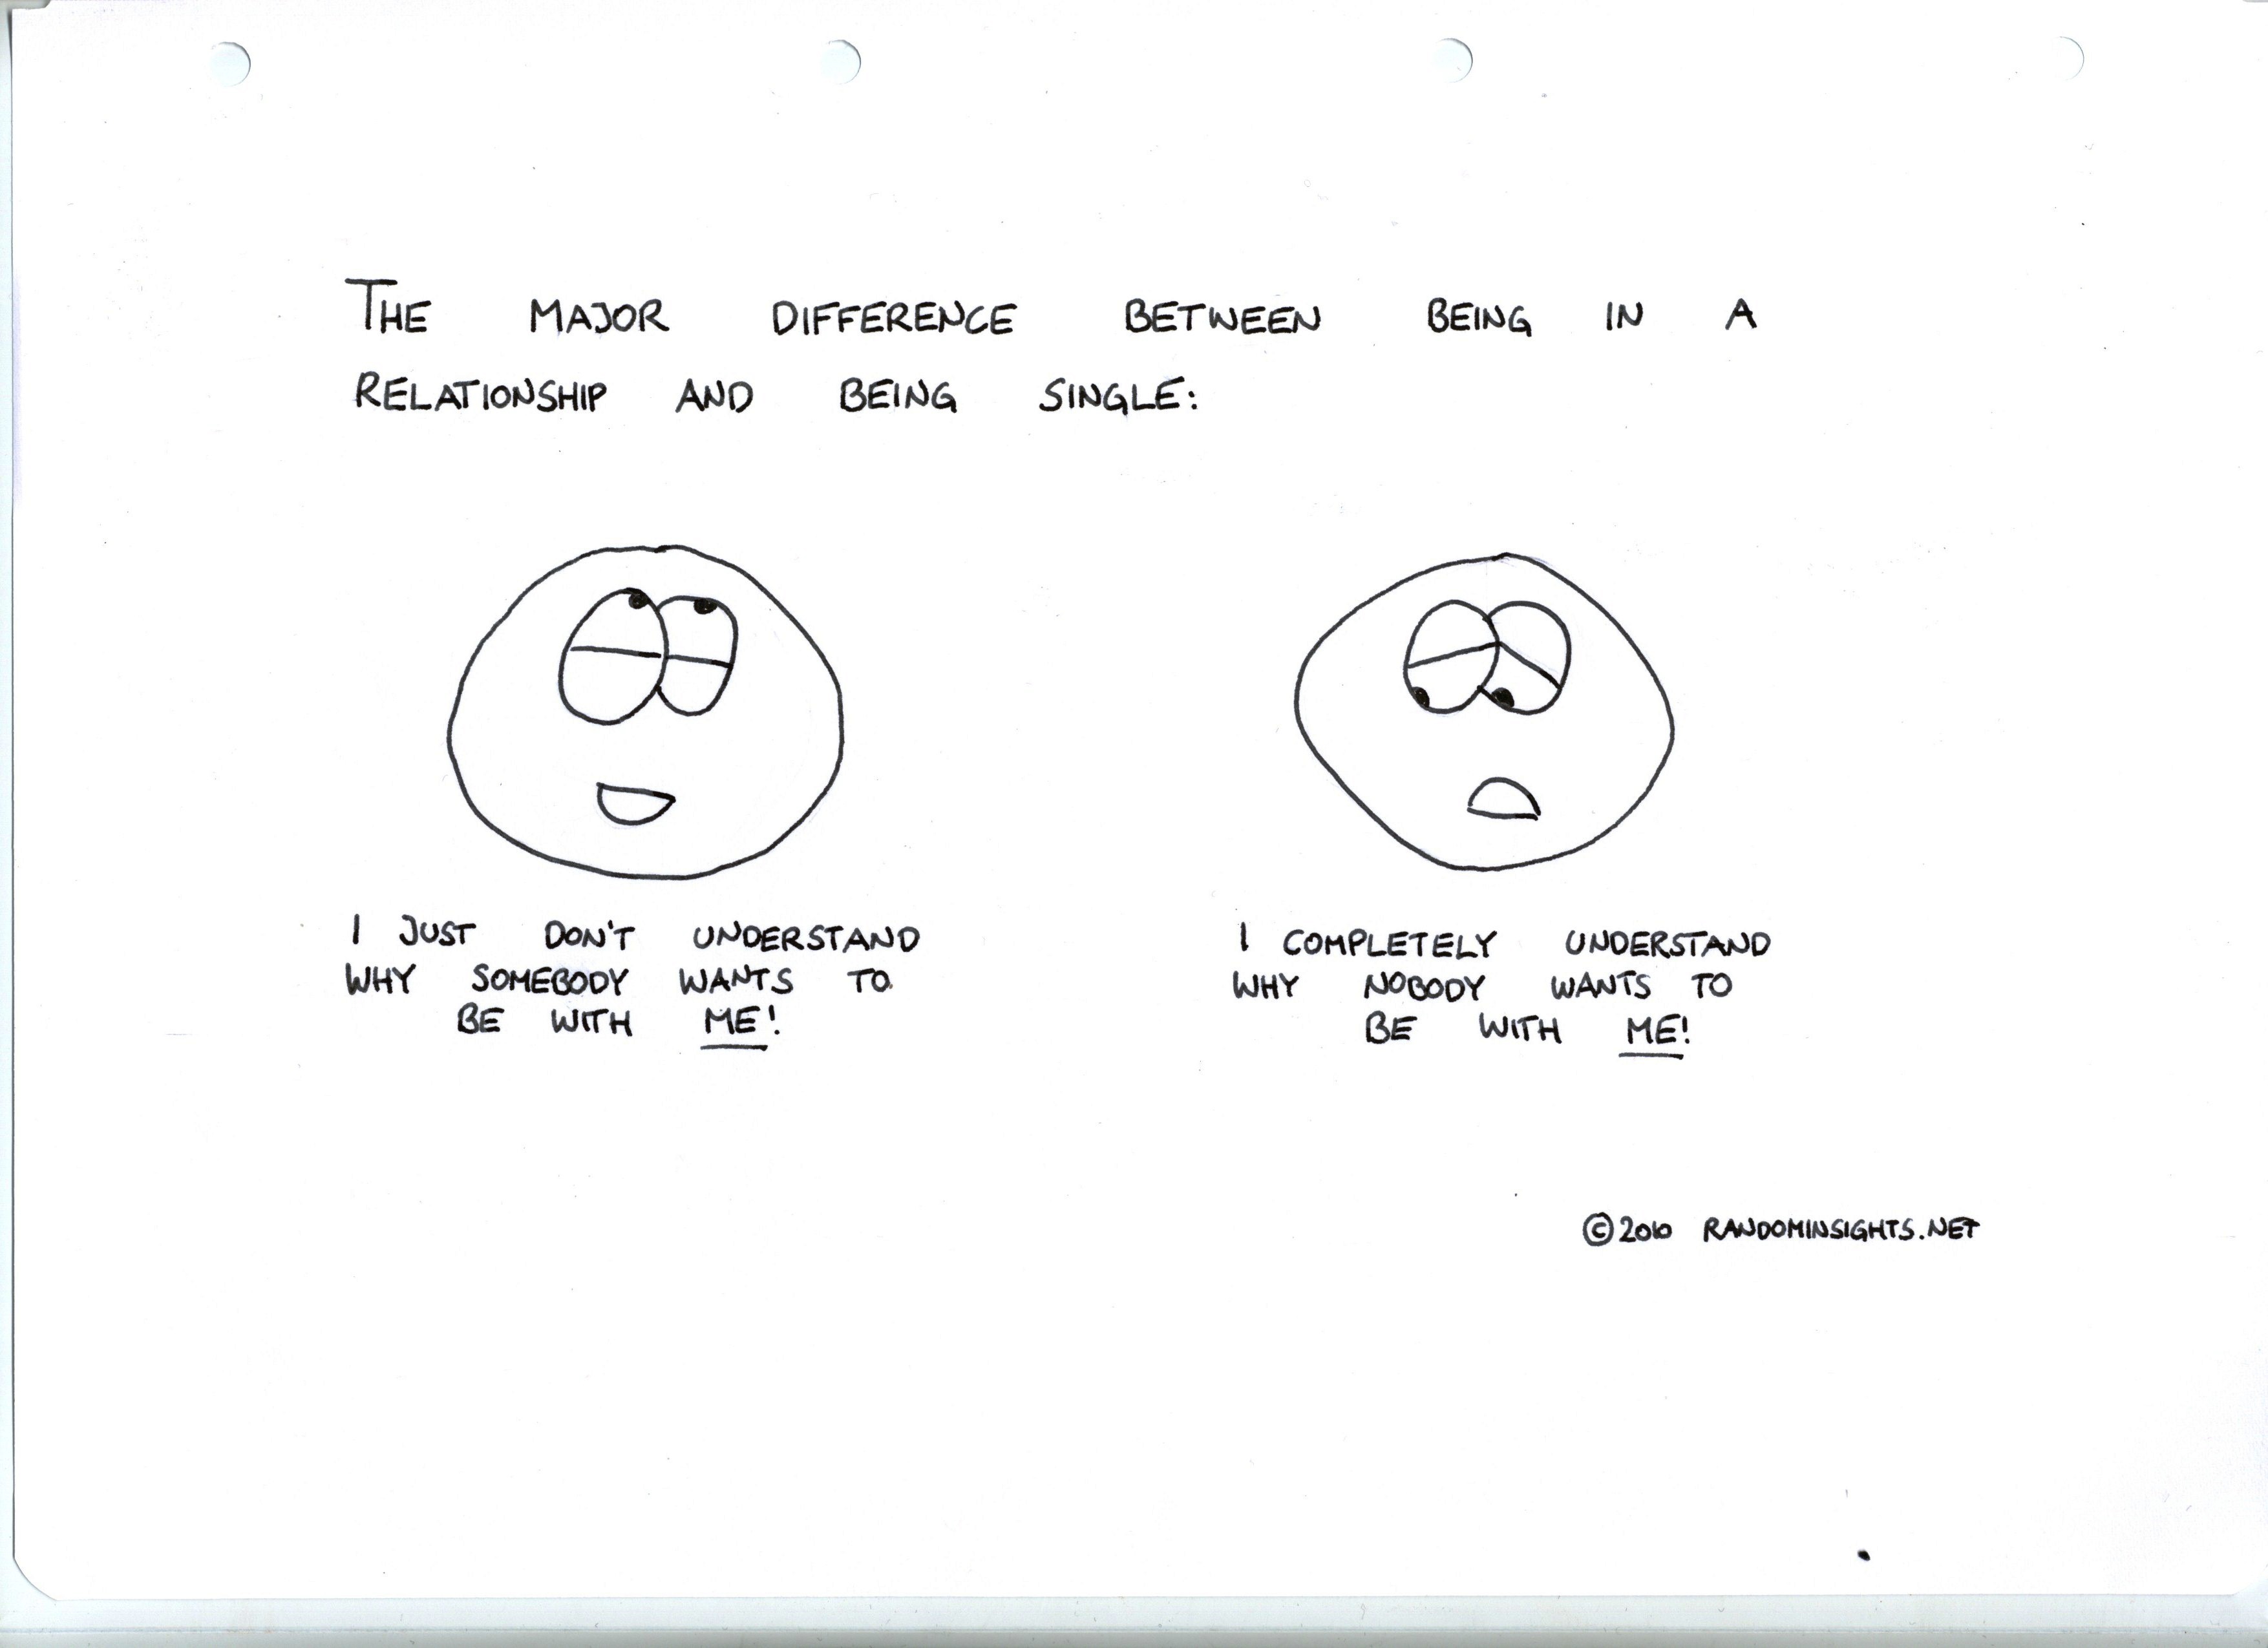 THE MAJOR DIFFERENCE BETWEEN BEING IN A
RELATIONSHIP AND BEING SINGLE:
I JUST DON'T UNDERSTAND
WHY SOMEBODY WANTS TO
BE WITH ME!
I COMPLETELY UNDERSTAND
WHY NOBODY WANTS TO
BE WITH ME!
©2010 RANDOMINSIGHTS.NET